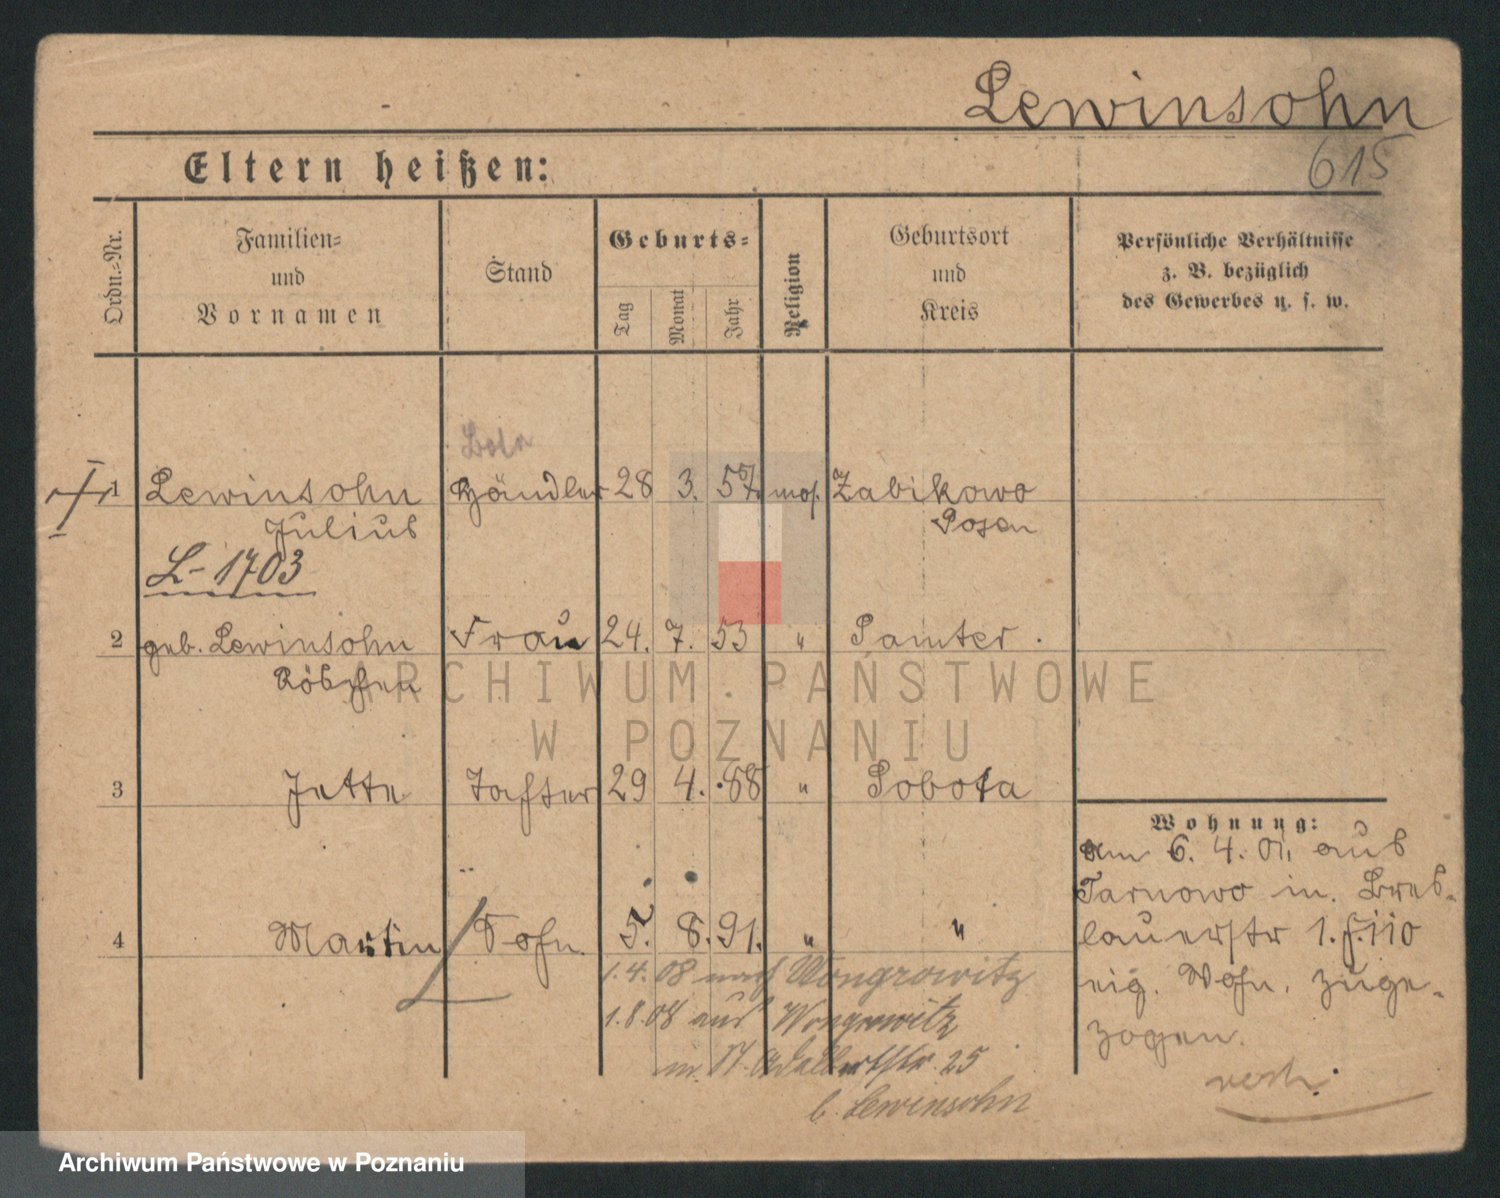 Lewinsohn
615
Eltern heißen:
Ordn.-Nr.
Familien-
und
Vornamen
Stand
Geburts-
Tag
Monat
Jahr
Religion
Geburtsort
und
Kreis
Persönliche Verhältnisse
z. B. bezüglich
des Gewerbes u. s. w.
1 Lewinsohn Händler 28 3. 57. mos. Zabikowo
Julius Posen
L-1703
2 geb. Lewinsohn Frau 24. 7. 53 " Samter.
Röschen
ARCHIWUM PAŃSTWOWE
W POZNANIU
3 Jette Tochter 29 4. 88 " Sobota
4 Martin Sohn. 5. 8. 91. " "
Wohnung:
Am 6. 4. 01. aus
Tarnowo in. Bres-
lauerstr 1. f. 110
eig. Wohn. zuge-
zogen.
1.4.08 nach Wongrowitz
1.8.08 aus Wongrowitz
in St. Adalbertstr. 25
b. Lewinsohn
Archiwum Państwowe w Poznaniu